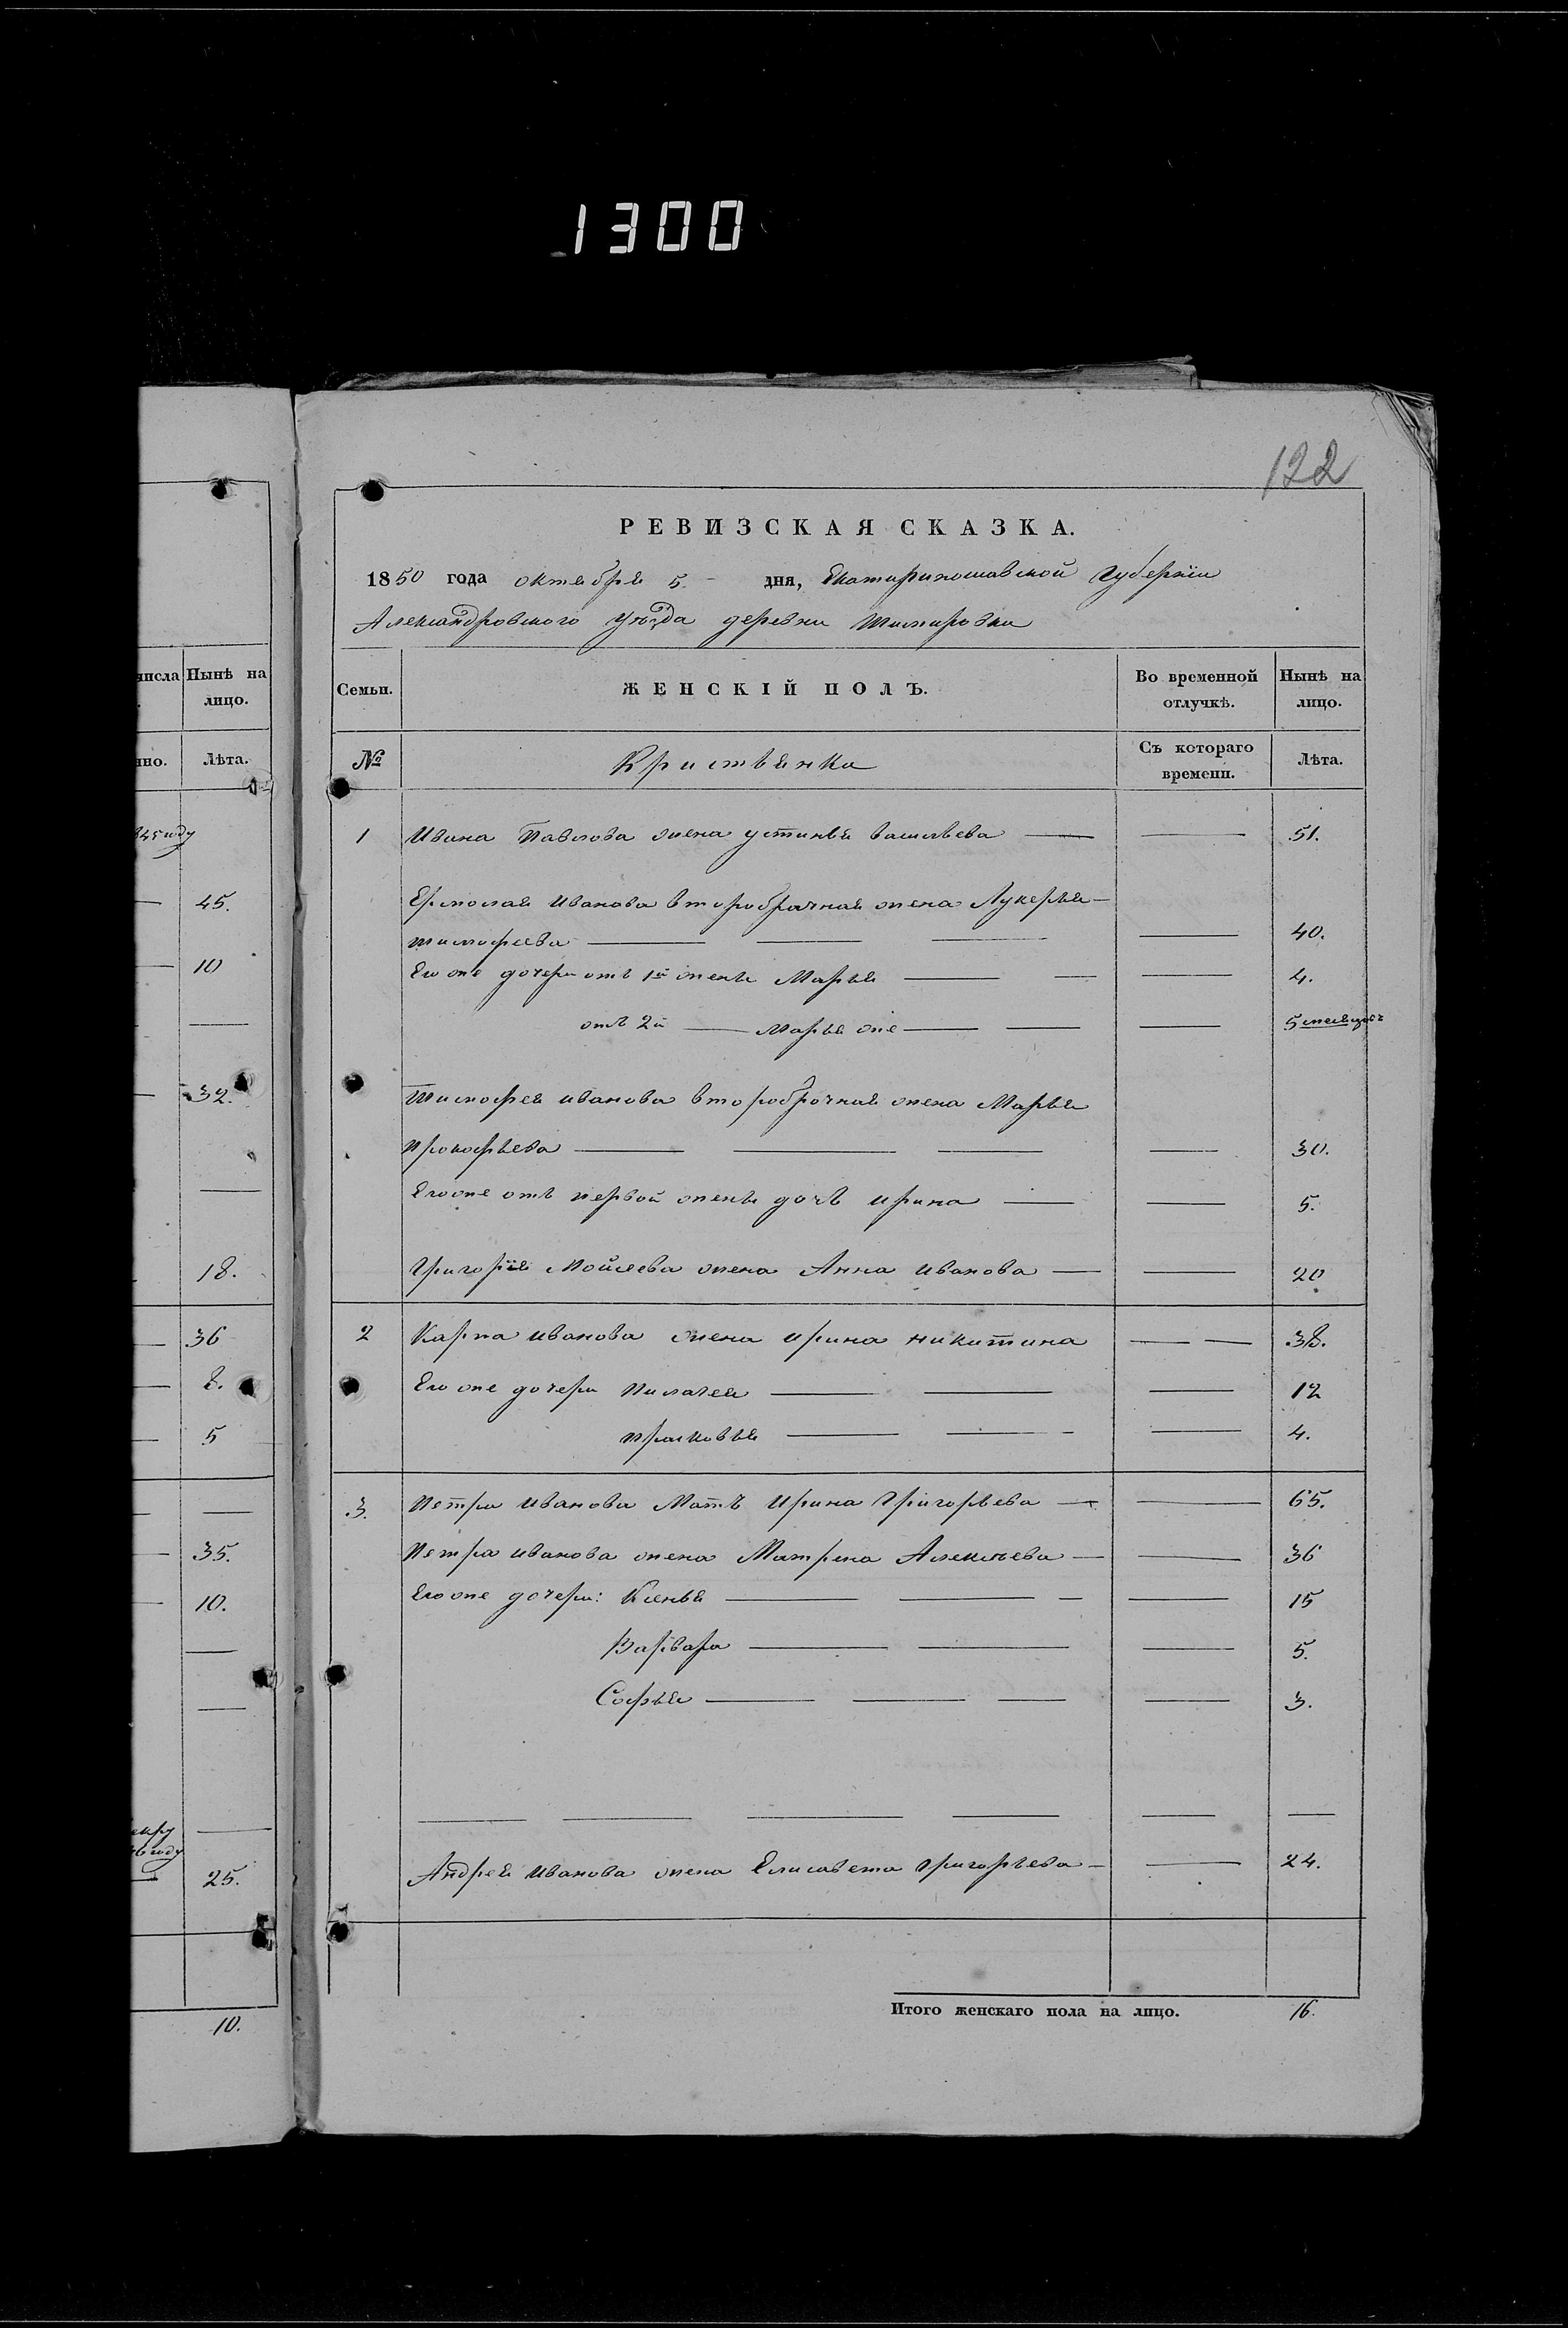 1300
122
РЕВИЗСКАЯ СКАЗКА.
1850 года октября 5 дня, Екатеринославской Губернїи
Александровского уѣзда деревни
числа Нынѣ на лицо.
Лѣта.
45.
10
32.
18.
36
8.
5
35.
10.
25.
10.
Семьи. ЖЕНСКІЙ ПОЛЪ. Во временной отлучкѣ. Нынѣ на лицо.
№ Съ котораго времени. Лѣта.
1 Ивана Павлова жена устинья васильева 51.
Ермолая Иванова второбрачная жена Лукерья
тимофеева 40.
Его же дочери отъ 1й жены Марья 4.
отъ 2й Марья же 5 месяцовъ
Тимофея иванова второбрачная жена Марья
прокофьева 30.
Его же отъ первой жены дочь ирина 5.
Григорїя Мойсеева жена Анна иванова 20
2 Карпа иванова жена ирина никитина 38.
Его же дочери пилагея 12
прасковья 4.
3. Петра иванова Мать ирина Григорьева 65.
Петра иванова жена Матрена Алексеева 36
Его же дочери: Ксенья 15
Варвара 5.
Софья 3.
Андрея иванова жена Елисавета григорьева 24.
Итого женскаго пола на лицо. 16.